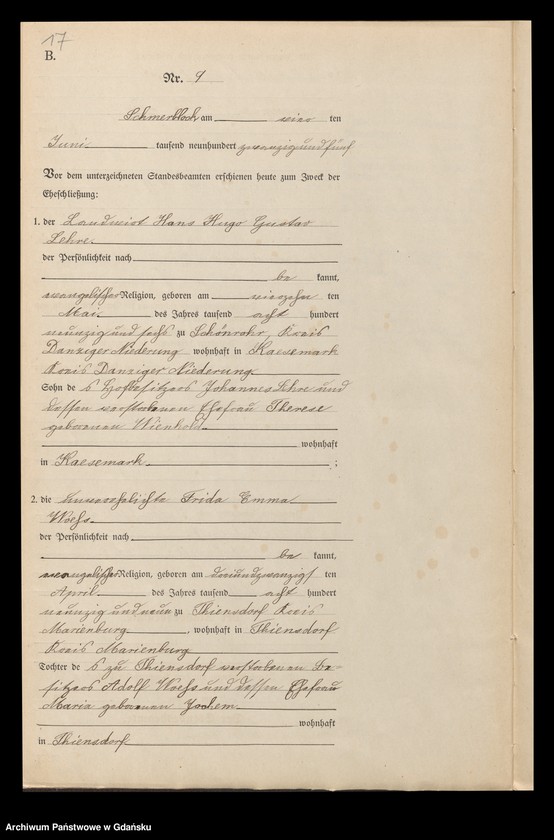 17
B.
Nr. 9
Schmerblock am vier ten
Juni tausend neunhundert zwanzig und fünf
Vor dem unterzeichneten Standesbeamten erschienen heute zum Zweck der
Eheschließung:
1. der Landwirt Hans Hugo Gustav
Lehre
der Persönlichkeit nach
be kannt,
evangelischer Religion, geboren am vierzehn ten
Mai des Jahres tausend acht hundert
neunzig und sechs zu Schönrohr, Kreis
Danziger Niederung wohnhaft in Kaesemark
Kreis Danziger Niederung
Sohn de s Hofbesitzers Johannes Lehre und
dessen verstorbenen Ehefrau Therese
geborenen Wienhold
wohnhaft
in Kaesemark ;
2. die unverehelichte Frida Emma
Woehs
der Persönlichkeit nach
be kannt,
evangelischer Religion, geboren am dreiundzwanzigst ten
April des Jahres tausend acht hundert
neunzig und neun zu Thiensdorf Kreis
Marienburg, wohnhaft in Thiensdorf
Kreis Marienburg
Tochter de s zu Thiensdorf verstorbenen Be-
sitzers Adolf Woehs und dessen Ehefrau
Maria geborenen Jochem
wohnhaft
in Thiensdorf
Archiwum Państwowe w Gdańsku